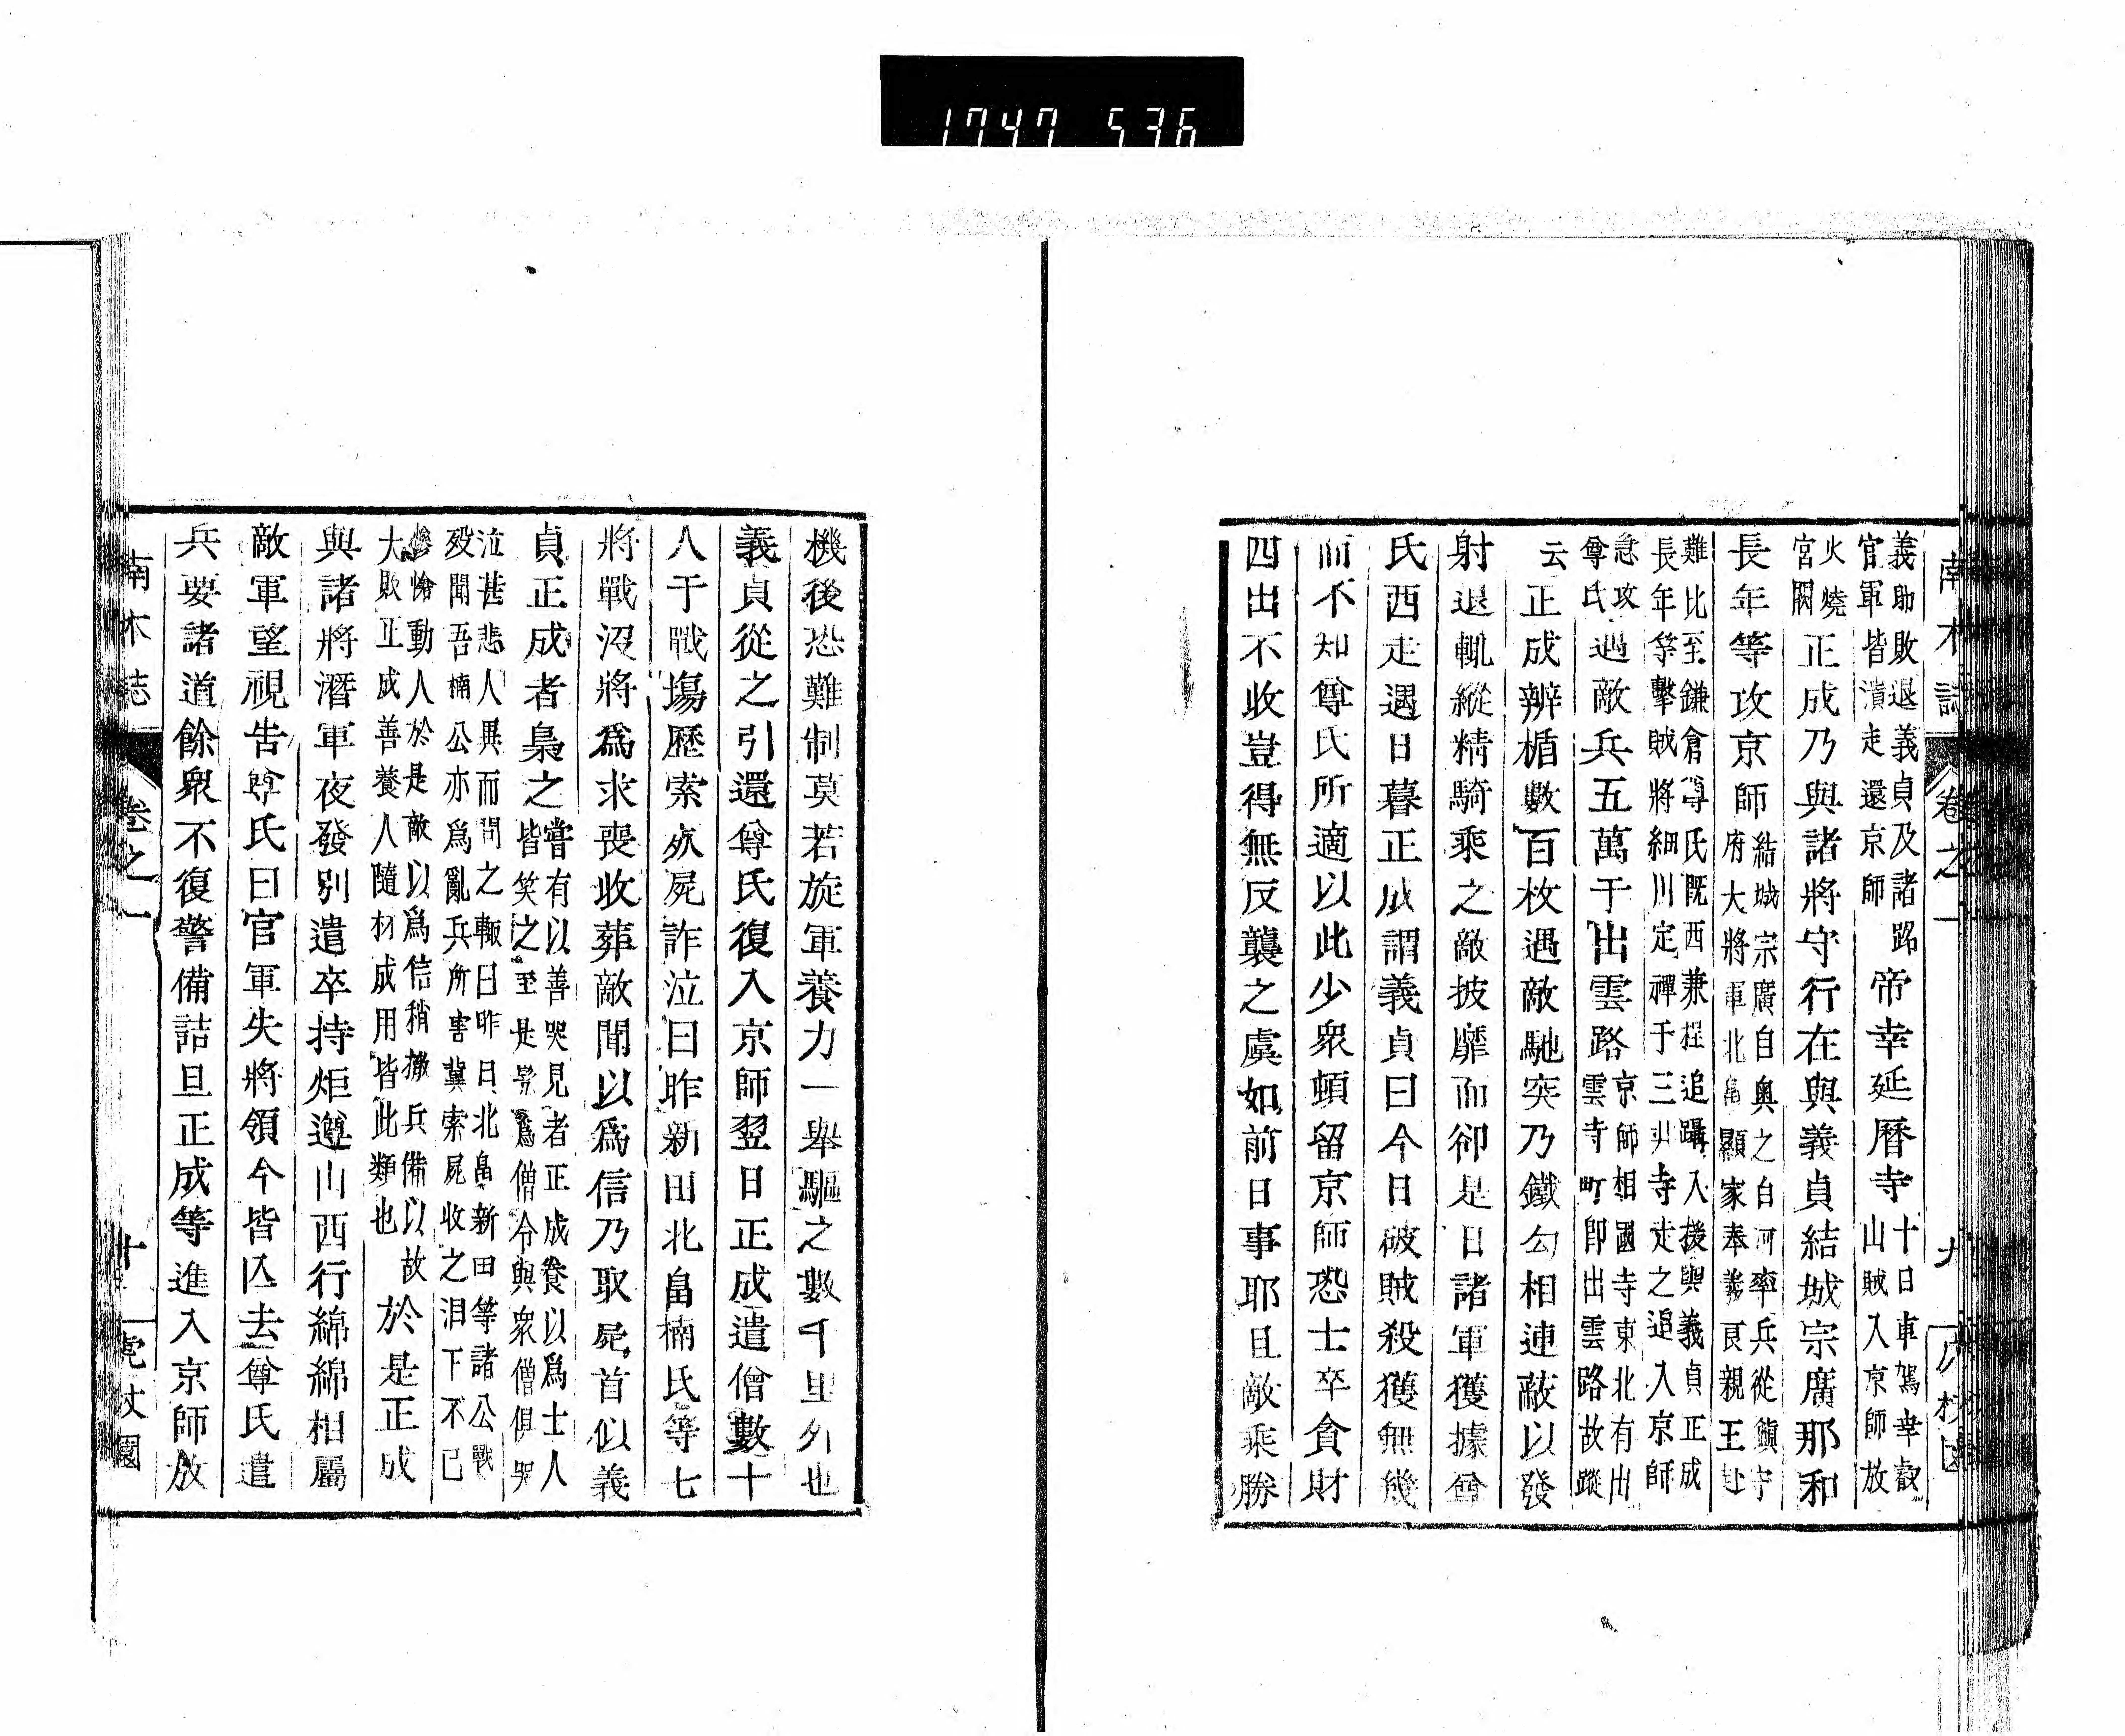 1747 536
南木誌 卷之一 九
義助敗退義貞及諸路
官軍皆潰走還京師
帝幸延曆寺
十日車駕幸叡
山賊入京師放
火燒
宮闕
正成乃與諸將守行在與義貞結城宗廣那和
長年等攻京師
結城宗廣自奧之白河率兵從鎭守
府大將軍北畠顯家奉義良親王赴
難比至鎌倉尊氏既西兼程追躡入援與義貞正成
長年等擊賊將細川定禪于三井寺走之追入京師
急攻
尊氏
遇敵兵五萬于出雲路
京師相國寺東北有出
雲寺町卽出雲路故蹤
云
正成辨楯數百枚遇敵馳突乃鐵勾相連蔽以發
射退輒縱精騎乘之敵披靡而卻是日諸軍獲據尊
氏西走遇日暮正成謂義貞曰今日破賊殺獲無幾
而不知尊氏所適以此少衆頓留京師恐士卒貪財
四出不收豈得無反襲之虞如前日事耶且敵乘勝
機後恐難制莫若旋軍養力一舉驅之數千里外也
義貞從之引還尊氏復入京師翌日正成遣僧數十
人于戰場歷索死屍詐泣曰昨新田北畠楠氏等七
將戰沒將爲求喪收葬敵聞以爲信乃取屍首似義
貞正成者梟之
嘗有以善哭見者正成養以爲士人
皆笑之至是髡爲僧令與衆僧俱哭
泣甚悲人異而問之輒曰昨日北畠新田等諸公戰
歿聞吾楠公亦爲亂兵所害冀索屍收之泪下不已
慘憺動人於是敵以爲信稍撤兵備以故
大敗正成善養人隨材成用皆此類也
於是正成
與諸將潛軍夜發別遣卒持炬遵山西行綿綿相屬
敵軍望視告尊氏曰官軍失將領今皆亾去尊氏遣
兵要諸道餘衆不復警備詰旦正成等進入京師放
南木誌 卷之一 十 虎杖園